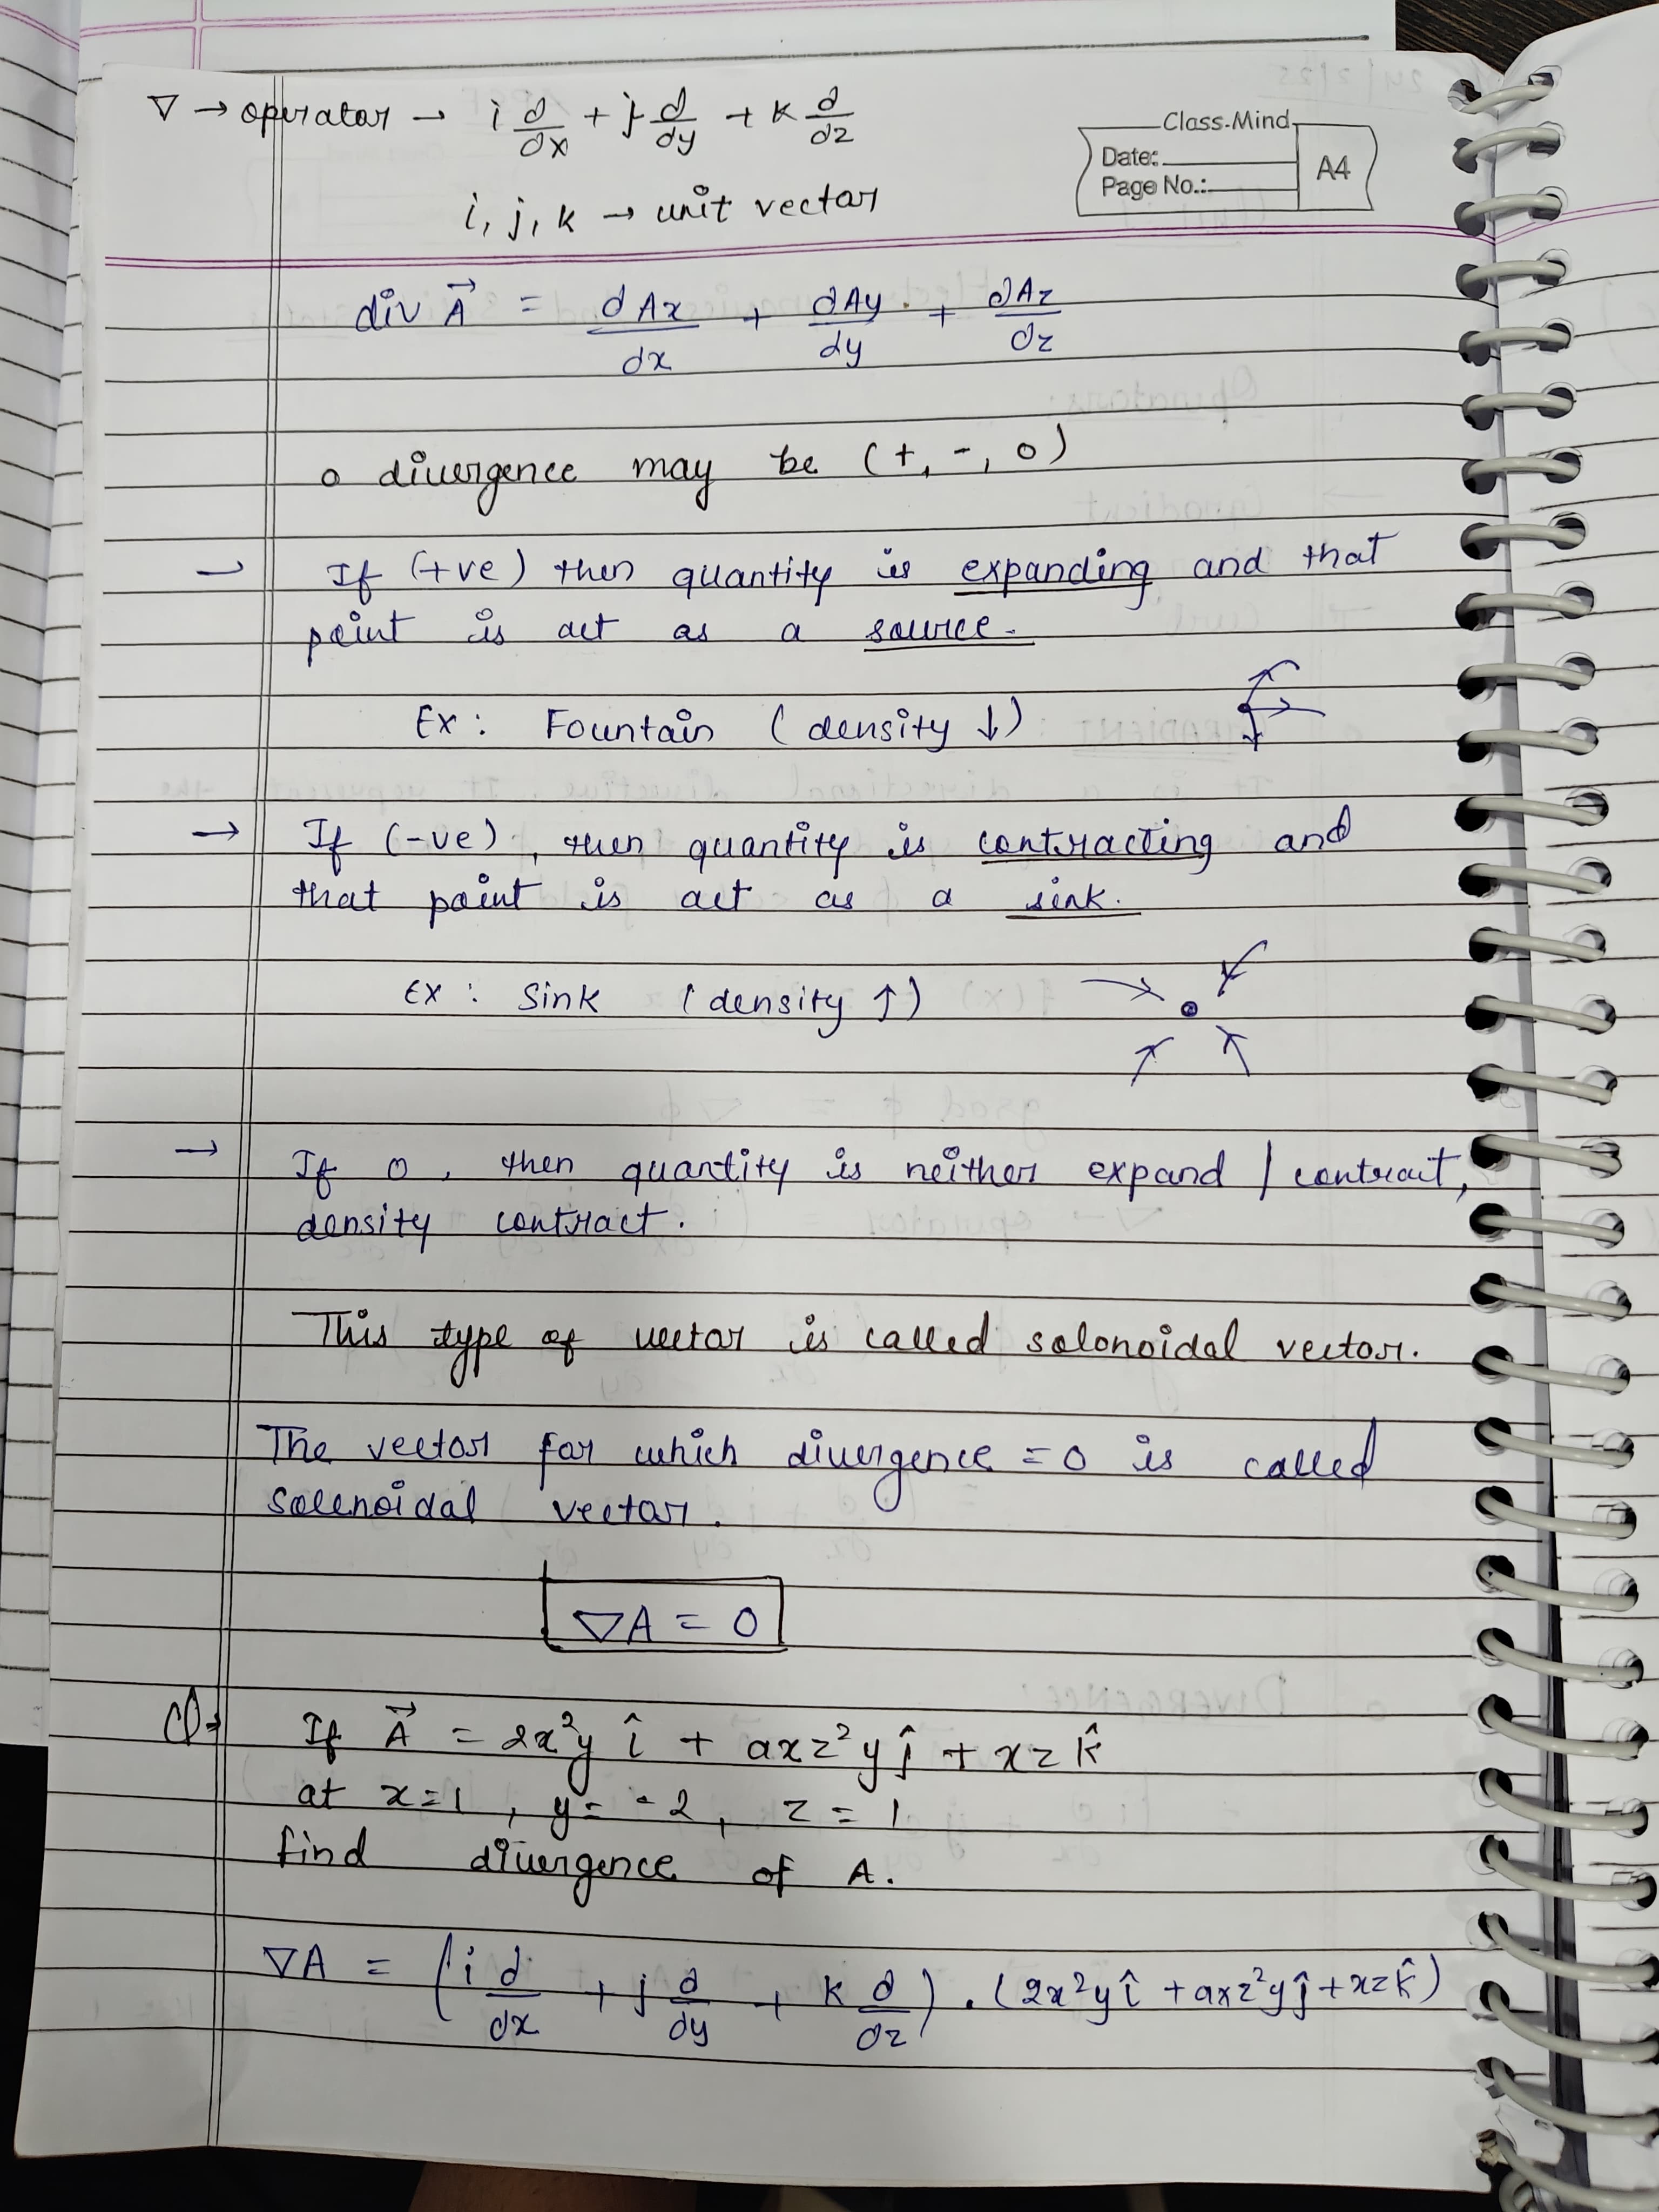 ∇ → operator → i ∂/∂x + j ∂/∂y + k ∂/∂z
Class-Mind
Date:
Page No.:
A4
i, j, k → unit vector
div A⃗ = ∂Ax/∂x + ∂Ay/∂y + ∂Az/∂z
o divergence may be (+, -, 0)
→ If (+ve) then quantity is expanding and that
point is act as a source.
Ex: Fountain (density ↓)
→ If (-ve), then quantity is contracting and
that point is act as a sink.
Ex: Sink (density ↑)
→ If 0, then quantity is neither expand / contract,
density contract.
This type of vector is called solonoidal vector.
The vector for which divergence = 0 is called
solenoidal vector.
∇A = 0
Q→ If A⃗ = 2x²y î + axz²y ĵ + xz k̂
at x=1, y= -2, z = 1
find divergence of A.
∇A = (i ∂/∂x + j ∂/∂y + k ∂/∂z) . (2x²y î + axz²y ĵ + xz k̂)